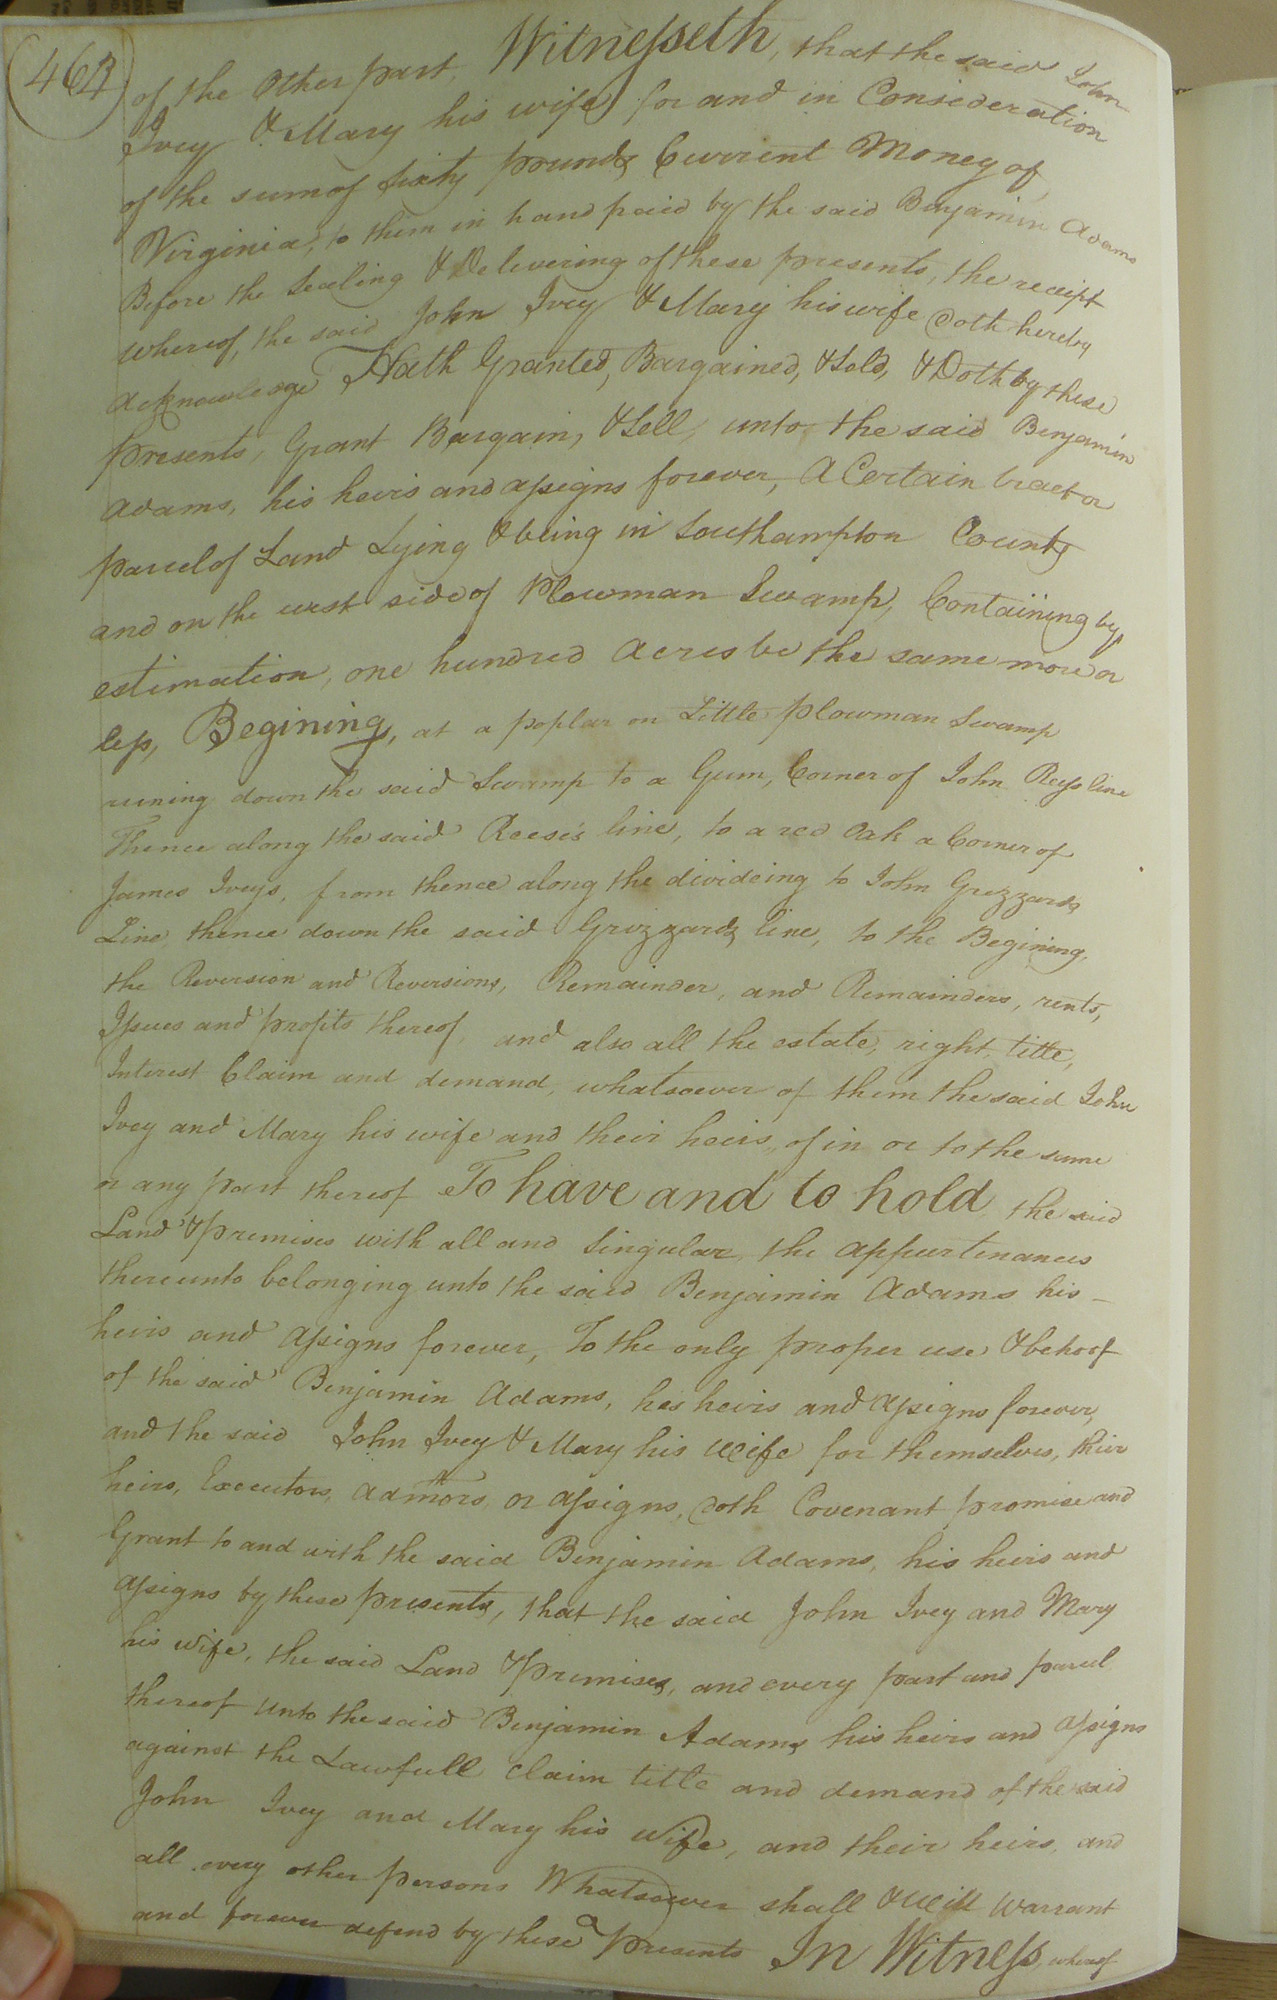 464
of the Other part, Witnesseth, that the said John
Ivey & Mary his wife for and in Consideration
of the sum of Sixty pounds Current Money of
Virginia, to them in hand paid by the said Benjamin Adams
Before the Sealing & Delivering of these presents, the receipt
whereof, the said John Ivey & Mary his wife doth hereby
acknowledge Hath Granted, Bargained, & Sold, & Doth by these
presents, Grant Bargain, & Sell, unto the said Benjamin
Adams, his heirs and assigns forever, A Certain tract or
parcel of Land Lying & being in Southampton County
and on the west side of Plowman Swamp, Containing by
estimation, one hundred acres be the same more or
less, Begining, at a poplar on Little Plowman Swamp
runing down the said Swamp to a Gum, Corner of John Reess line
Thence along the said Reese's line, to a red Oak a Corner of
James Iveys, from thence along the divideing to John Grizzards
Line, thence down the said Grizzards line, to the Begining,
the Reversion and Reversions, Remainder, and Remainders, rents,
Issues and profits thereof, and also all the estate, right, title,
Interest Claim and demand, whatsoever of them the said John
Ivey and Mary his wife and their heirs, of in or to the same
or any part thereof To have and to hold the said
Land & premises with all and Singular, the appurtenances
thereunto belonging unto the said Benjamin Adams his
heirs and assigns forever, To the only proper use & behoof
of the said Benjamin Adams, his heirs and assigns forever,
and the said John Ivey & Mary his wife for themselves, their
heirs, Executors, admors, or assigns, doth Covenant promise and
Grant to and with the said Benjamin Adams, his heirs and
assigns by these presents, that the said John Ivey and Mary
his wife, the said Land & Premises, and every part and parcel
thereof unto the said Benjamin Adams his heirs and assigns
against the Lawfull Claim title and demand of the said
John Ivey and Mary his wife, and their heirs, and
all every other persons Whatsoever shall & will Warrant
and forever defend by these presents In Witness, whereof